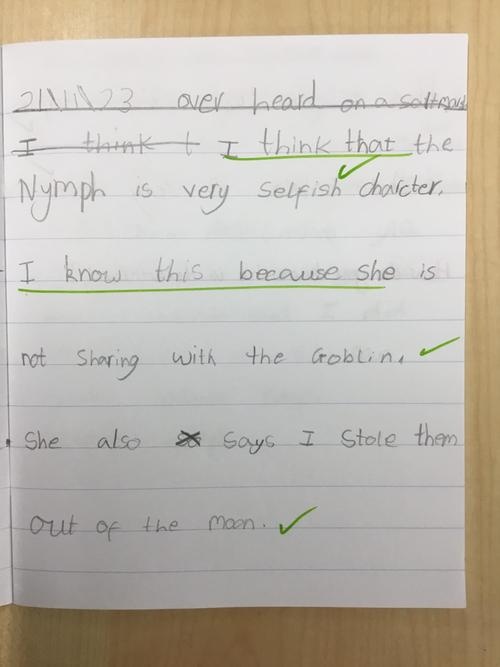 21\11\23 over heard on a saltmarsh
I think t I think that the
Nymph is very Selfish charcter.
I know this because she is
not Sharing with the Goblin.
She also says I Stole them
out of the moon.